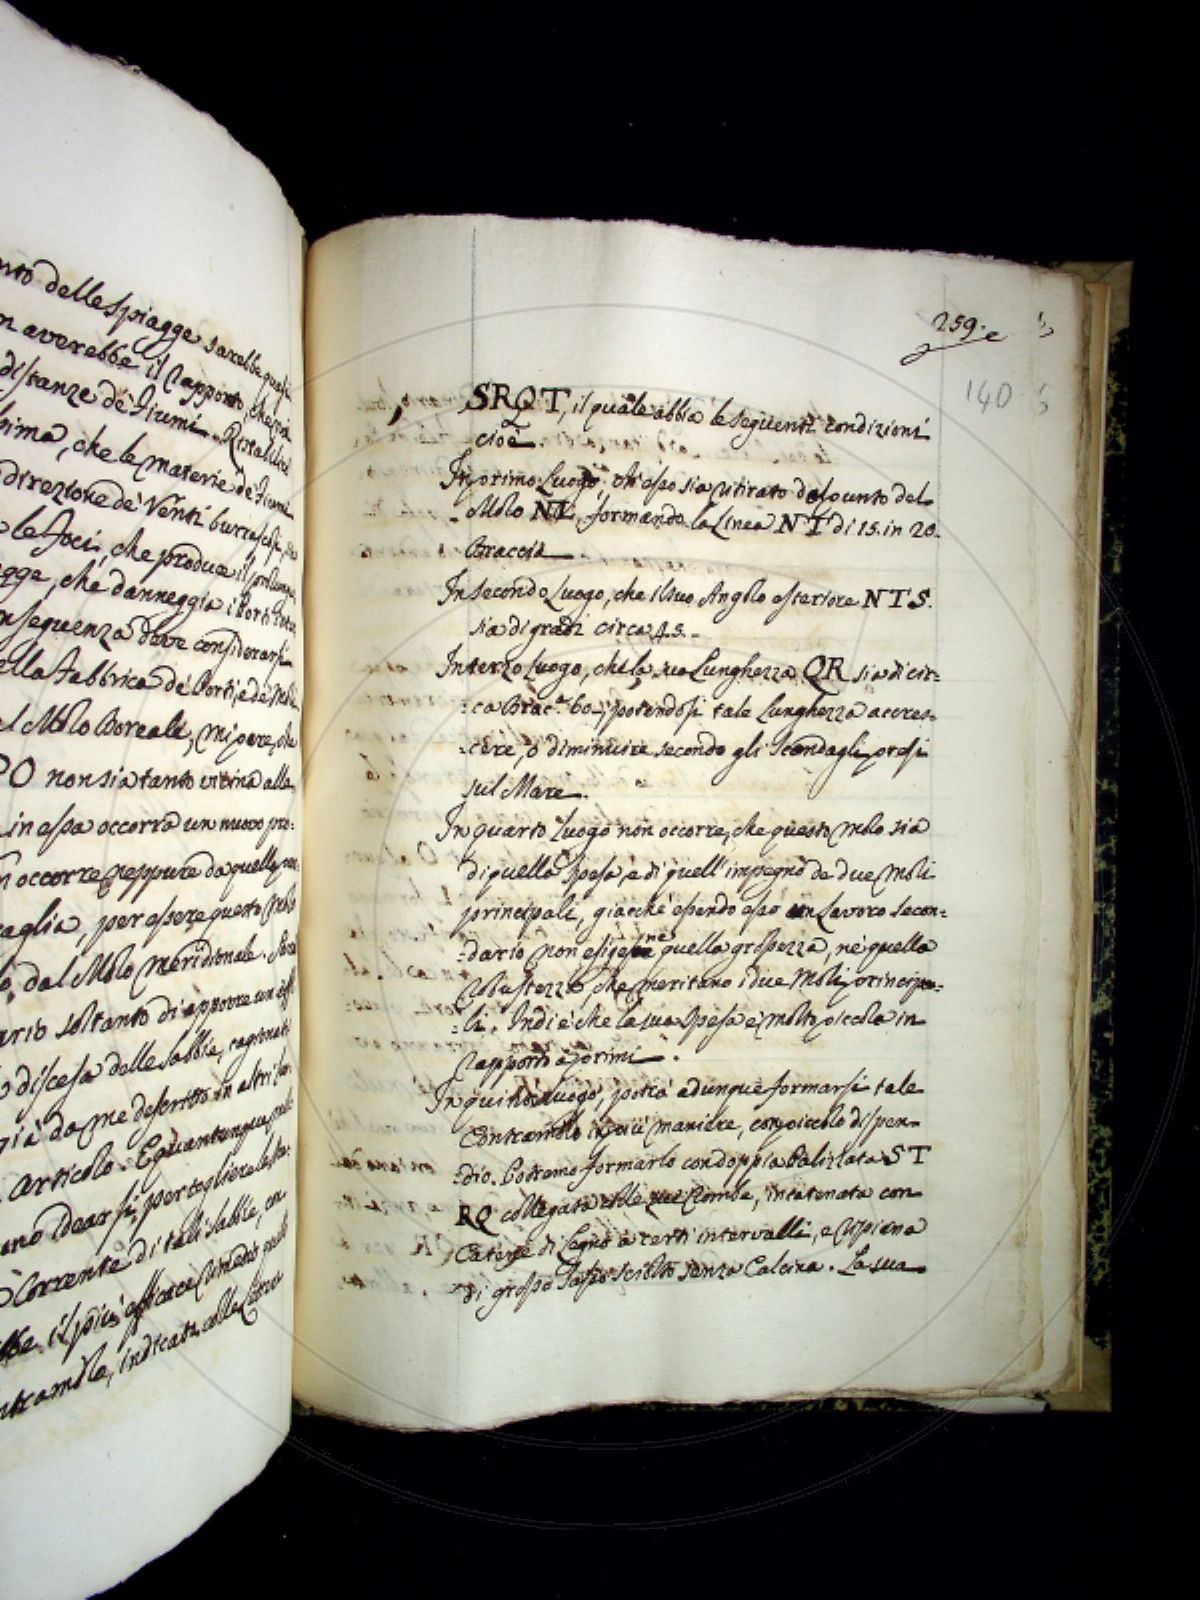 nto delle Spiagge sarebbe quasi
n averebbe il rapporto, che
distanze de' Fiumi. Ristabilita
sima, che le materie de' Fiumi
direzione de' Venti burrascosi,
le foci, che produce il prolunga
gge, che danneggia i Porti
nseguenza deve considerarsi
ella Fabbrica de' Porti, e de' Moli
el Molo Boreale, mi pare, che
PO non sia tanto vicina alla
in essa occorra un nuovo pro:
n occorre neppure da quella par
caglia, per essere questo Molo
o, dal Molo meridionale.
ario soltanto di apporre un
discesa delle sabbie, cagionate
già da me descritto in altri
articolo. E quantunque
ano idearsi, per togliere la sta:
Corrente di tali sabbie, con
bbe il più efficace rimedio
ntramolo, indicato colle Linee
259.
140
SRQT, il quale abbia le seguenti condizioni
cioè.
In primo Luogo, ch'esso sia ritirato dal punto del
Molo NL, formando la Linea NT di 15. in 20.
Braccia
In secondo Luogo, che il suo Anglo esteriore NTS.
sia di gradi circa 45.
In terzo Luogo, che la sua Lunghezza QR sia di cir:
:ca Brac.ª 60., potendosi tale Lunghezza acres:
:cere, o diminuire secondo gli Scandagli presi
sul Mare.
In quarto Luogo non occorre, che questo molo sia
di quella Spesa, e di quell'impegno de due Moli
principali, giacchè essendo esso un Lavoro secon:
:dario non esige ne quella grossezza, nè quella
robustezza, che meritano i due Moli principa:
:li. Indi è che la sua Spesa è molto piccola in
rapporto a primi.
In quinto Luogo, potrà adunque formarsi tale
Contramolo in più maniere, con piccolo dispen:
:dio. Potremo formarlo con doppia Palizzata ST
RQ collegata colle sue Rombe, incatenata con
Catene di Legno a certi intervalli, e ripiena
di grosso Sasso sciolto senza Calcina. La sua